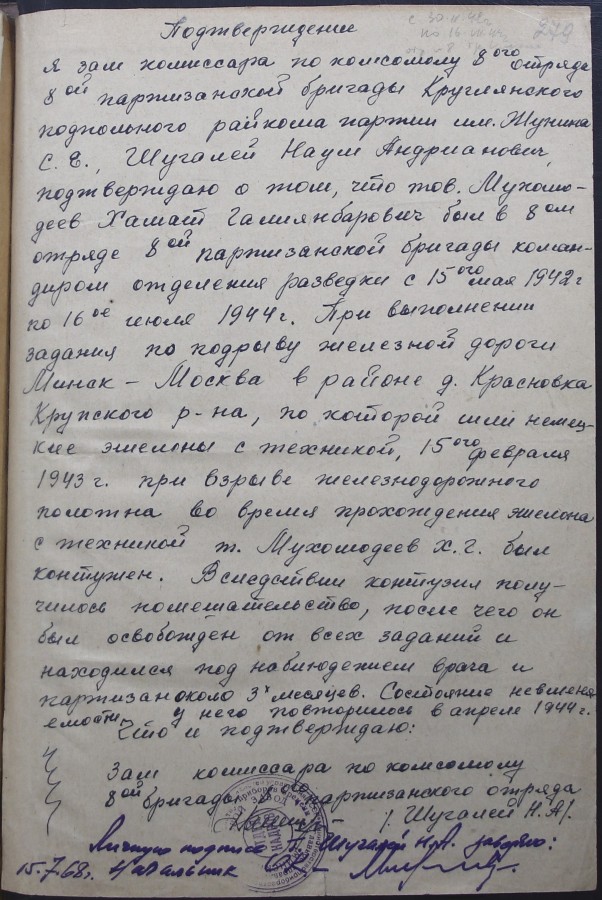 279
Подтверждение
Я зам комиссара по комсомолу 8ого отряда
8ой партизанской бригады Круглянского
подпольного райкома партии им. Жунина
С. Е., Шугалей Наум Андрианович,
подтверждаю о том, что тов. Мухомо-
деев Хамат Галиянбарович был в 8ом
отряде 8ой партизанской бригады коман-
диром отделения разведки с 15ого мая 1942г
по 16ое июля 1944г. При выполнении
задания по подрыву железной дороги
Минск – Москва в районе д. Красновка
Крупского р-на, по которой шли немец-
кие эшелоны с техникой, 15ого февраля
1943г. при взрыве железнодорожного
полотна во время прохождения эшелона
с техникой т. Мухомодеев Х.Г. был
контужен. Вследствии контузия полу-
чилось помешательство, после чего он
был освобожден от всех заданий и
находился под наблюдением врача и
партизан около 3х месяцев. Состояние невменя
емости у него повторилось в апреле 1944г.
Что и подтверждаю:
Зам комиссара по комсомолу
8ой бригады 8ого партизанского отряда
/Шугалей Н.А/.
Личную подпись т. Шугалей Н.А. заверяю:
15.7.68г. Начальник